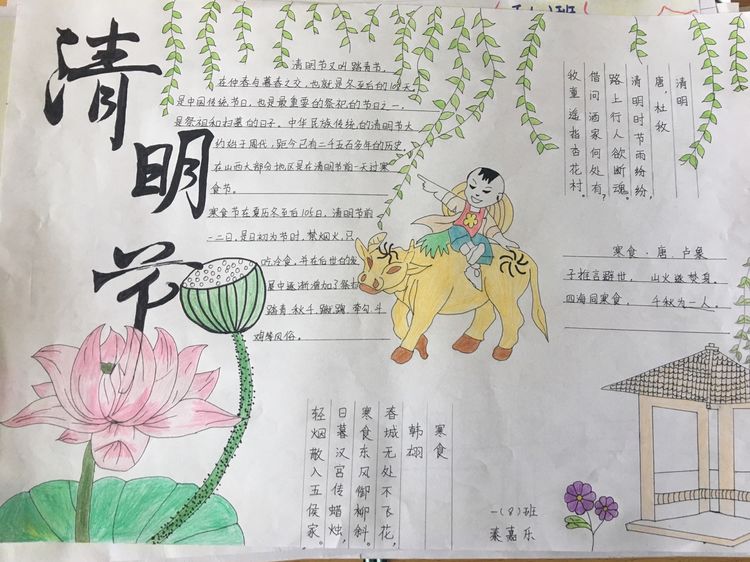 清明节
清明节又叫踏青节,
在仲春与暮春之交,也就是冬至后的108天。
是中国传统节日,也是最重要的祭祀的节日之一,
是祭祖和扫墓的日子。中华民族传统的清明节大
约始于周代,距今已有二千五百多年的历史。
在山西大部分地区是在清明节前一天过寒
食节。
寒食节在夏历冬至后105日,清明节前
一二日,是日初为节时,禁烟火,只
吃冷食,并在后世的发
展中逐渐增加了祭扫
踏青 秋千 蹴鞠 牵勾 斗
鸡等风俗。
清明
唐,杜牧
清明时节雨纷纷,
路上行人欲断魂。
借问酒家何处有?
牧童遥指杏花村。
寒食·唐·卢象
子推言避世, 山火遂焚身。
四海同寒食, 千秋为一人。
寒食
韩翃
春城无处不飞花,
寒食东风御柳斜。
日暮汉宫传蜡烛,
轻烟散入五侯家。
一(8)班
秦嘉乐